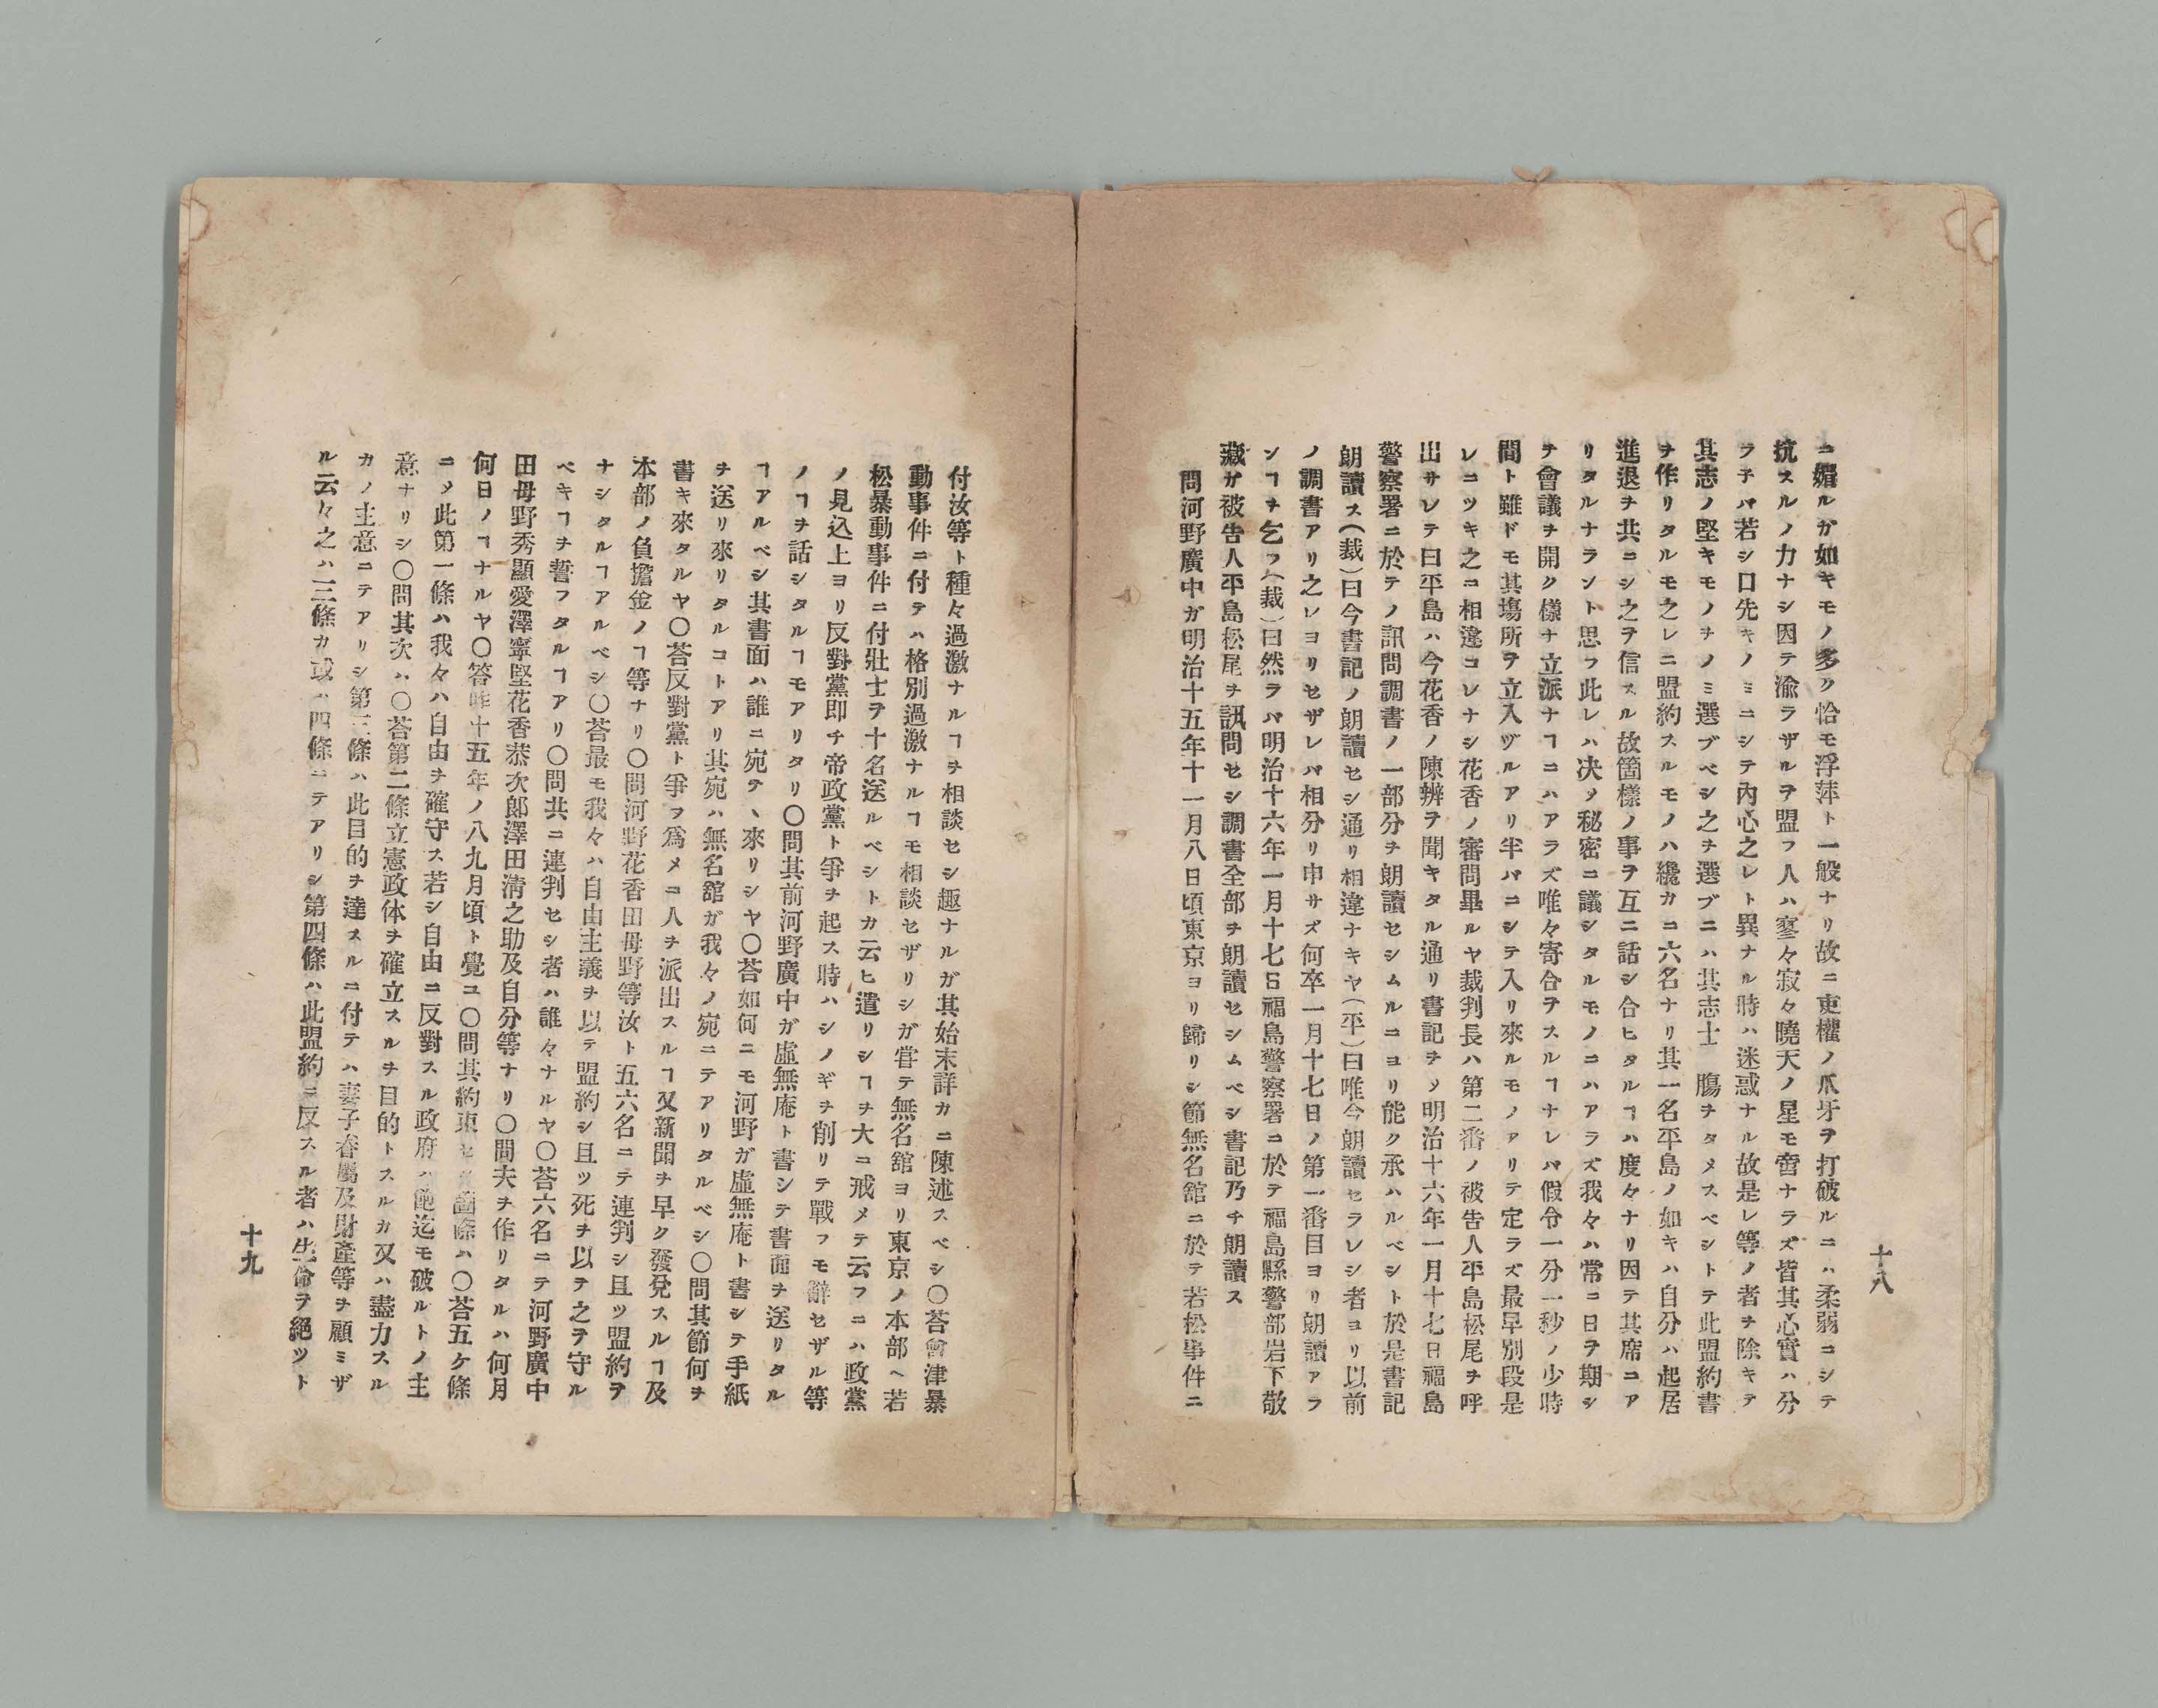 十八
ニ媚ルガ如キモノ多ク恰モ浮萍ト一般ナリ故ニ吏權ノ爪牙ヲ打破ルニハ柔弱ニシテ
抗スルノ力ナシ因テ渝ラザルヲ盟フ人ハ寥々寂々曉天ノ星モ啻ナラズ皆其心實ハ分
ラチバ若シ口先キノミニシテ內心之レト異ナル時ハ迷惑ナル故是レ等ノ者ヲ除キテ
其志ノ堅キモノヲノミ選ブベシ之ヲ選ブニハ其志士ノ膓ヲタメスベシトテ此盟約書
ヲ作リタルモ之レニ盟約スルモノハ纔カニ六名ナリ其一名平島ノ如キハ自分ハ起居
進退ヲ共ニシ之ヲ信スル故箇樣ノ事ヲ互ニ話シ合ヒタルヿハ度々ナリ因テ其席ニア
リタルナラント思フ此レハ决ソ秘密ニ議シタルモノニハアラズ我々ハ常ニ日ヲ期シ
テ會議ヲ開ク樣ナ立派ナヿニハアラズ唯々寄合ヲスルヿナレバ假令一分一秒ノ少時
間ト雖ドモ其塲所ヲ立入ヅルアリ半バニシテ入リ來ルモノアリテ定ラズ最早別段是
レニツキ之ニ相違コレナシ花香ノ審問畢ルヤ裁判長ハ第二番ノ被告人平島松尾ヲ呼
出サレテ曰平島ハ今花香ノ陳辨ヲ聞キタル通リ書記ヲソ明治十六年一月十七日福島
警察署ニ於テノ訊問調書ノ一部分ヲ朗讀セシムルニヨリ能ク承ハルベシト於是書記
朗讀ス(裁)曰今書記ノ朗讀セシ通リ相違ナキヤ(平)曰唯今朗讀セラレシ者ヨリ以前
ノ調書アリ之レヨリセザレバ相分リ申サズ何卒一月十七日ノ第一番目ヨリ朗讀アラ
ンヿヲ乞フ(裁)曰然ラバ明治十六年一月十七日福島警察署ニ於テ福島縣警部岩下敬
藏ガ被告人平島松尾ヲ訊問セシ調書全部ヲ朗讀セシムベシ書記乃チ朗讀ス
問河野廣中ガ明治十五年十一月八日頃東京ヨリ歸リシ節無名舘ニ於テ若松事件ニ
付汝等ト種々過激ナルヿヲ相談セシ趣ナルガ其始末詳カニ陳述スベシ〇荅會津暴
動事件ニ付テハ格別過激ナルヿモ相談セザリシガ甞テ無名舘ヨリ東京ノ本部ヘ若
松暴動事件ニ付壯士ヲ十名送ルベシトカ云ヒ遣リシヿヲ大ニ戒メテ云フニハ政黨
ノ見込上ヨリ反對黨即チ帝政黨ト爭ヲ起ス時ハシノギヲ削リテ戰フモ辭セザル等
ノヿヲ話シタルヿモアリタリ〇問其前河野廣中ガ虛無庵ト書シテ書面ヲ送リタル
ヿアルベシ其書面ハ誰ニ宛テヽ來リシヤ〇荅如何ニモ河野ガ虛無庵ト書シテ手紙
ヲ送リ來リタルコトアリ其宛ハ無名舘ガ我々ノ宛ニテアリタルベシ〇問其節何ヲ
書キ來タルヤ〇荅反對黨ト爭フ爲メニ人ヲ派出スルヿ又新聞ヲ早ク發兌スルヿ及
本部ノ負擔金ノヿ等ナリ〇問河野花香田母野等汝ト五六名ニテ連判シ且ツ盟約ヲ
ナシタルヿアルベシ〇荅最モ我々ハ自由主義ヲ以テ盟約シ且ツ死ヲ以テ之ヲ守ル
ベキヿヲ誓フタルヿアリ〇問共ニ連判セシ者ハ誰々ナルヤ〇荅六名ニテ河野廣中
田母野秀顯愛澤寧堅花香恭次郎澤田淸之助及自分等ナリ〇問夫ヲ作リタルハ何月
何日ノヿナルヤ〇荅昨十五年ノ八九月頃ト覺ユ〇問其約束セシ箇條ハ〇荅五ケ條
ニメ此第一條ハ我々ハ自由ヲ確守ス若シ自由ニ反對スル政府ハ飽迄モ破ルトノ主
意ナリシ〇問其次ハ〇荅第二條立憲政体ヲ確立スルヲ目的トスルカ又ハ盡力スル
カノ主意ニテアリシ第三條ハ此目的ヲ達スルニ付テハ妻子眷屬及財產等ヲ顧ミザ
ル云々之ハ三條カ或ハ四條ニテアリシ第四條ハ此盟約ニ反スル者ハ生命ヲ絕ツト
十九